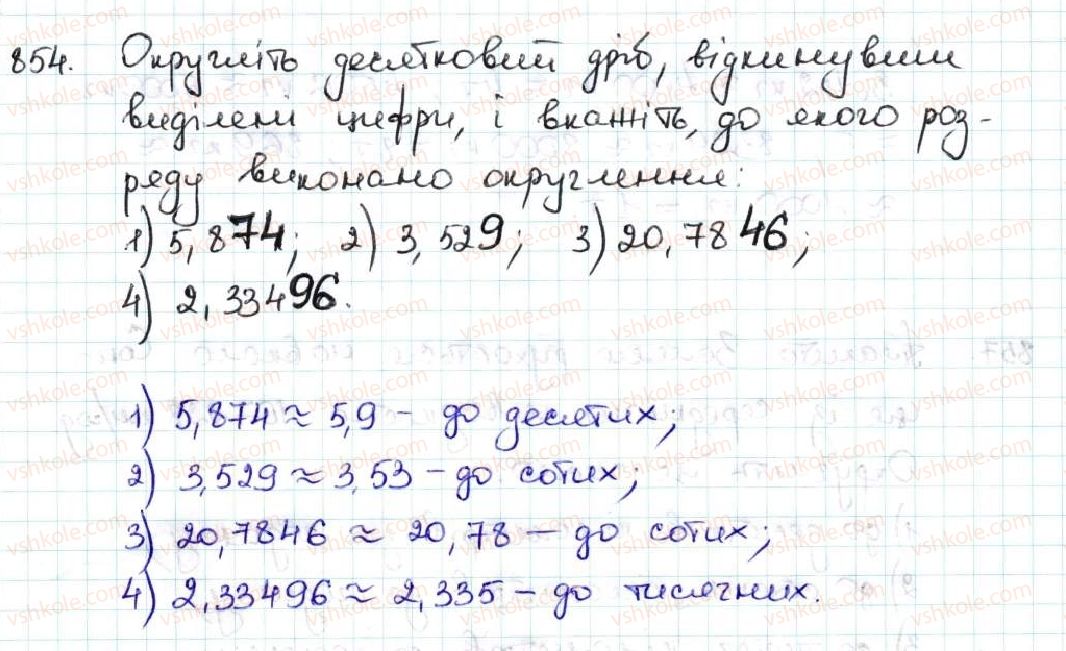 854. Округліть десятковий дріб, відкинувши
виділені цифри, і вкажіть, до якого роз-
ряду виконано округлення:
1) 5,874; 2) 3,529; 3) 20,7846;
4) 2,33496.
1) 5,874 ≈ 5,9 – до десятих;
2) 3,529 ≈ 3,53 – до сотих;
3) 20,7846 ≈ 20,78 – до сотих;
4) 2,33496 ≈ 2,335 – до тисячних.